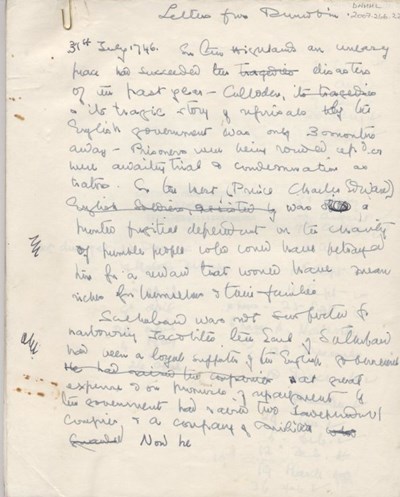 Letter from Dunrobin
DNHHL
2007.256.22
31st July 1746. In the Highlands an uneasy
peace had succeeded the tragedies disasters
of the past year - Culloden, its tragedies
& its tragic story of reprisals by the
English government was only 3 months
away - Prisoners were being rounded up & or
were awaiting trial & condemnation as
traitors. In the West (Prince Charles Edward)
English was a
hunted fugitive dependent on the charity
of humble people who could have betrayed
him for a reward that would have meant
riches for themselves & their families
Sutherland was not suspected of
harbouring Jacobites. The Earl of Sutherland
had been a loyal supporter of the English Government
He had raised two companies at great
expense & on promise of repayment by
the government had raised two Independent
Companies, & a company of Militia
Now he